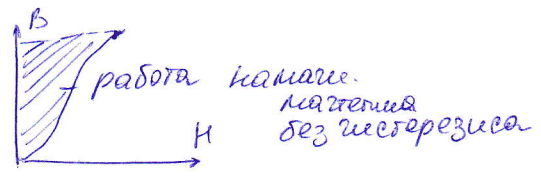 B
работа намагн.
магнетика
без гистерезиса
H